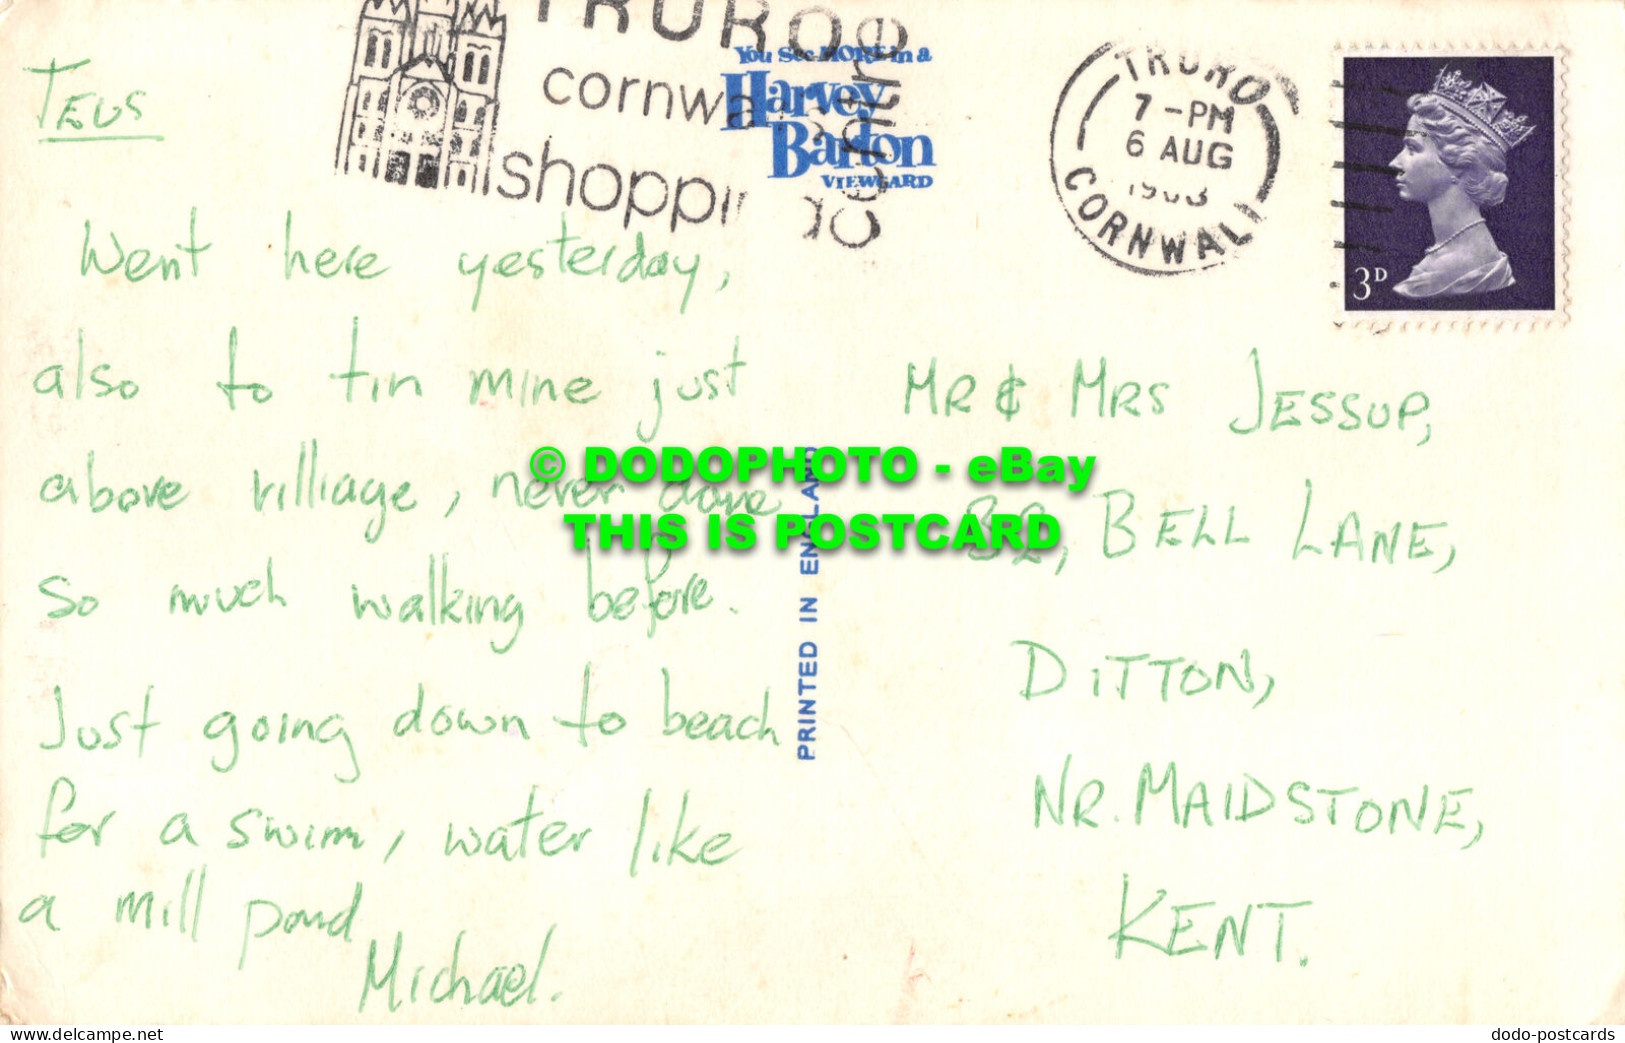 TRURO
cornwall
shopping
centre
You See MORE in a
Harvey
Barton
VIEWGARD
TRURO
7-PM
6 AUG
CORNWALL
3D
Teus
Went here yesterday,
also to tin mine just
above villiage, never done
so much walking before.
Just going down to beach
for a swim, water like
a mill pond
Michael.
PRINTED IN ENGLAND
MR & MRS JESSUP,
32, BELL LANE,
DITTON,
NR. MAIDSTONE,
KENT.
© DODOPHOTO - eBay
THIS IS POSTCARD
delcampe.net
dodo-postcards